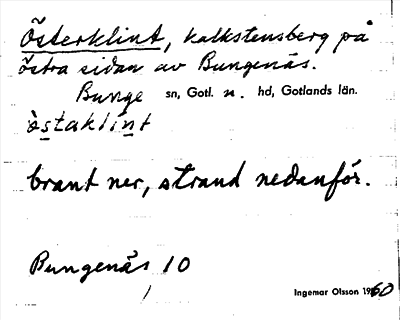 Österklint, kalkstensberg på
östra sidan av Bungenäs.
Bunge sn, Gotl. n. hd, Gotlands län.
östaklint
brant ner, strand nedanför.
Bungenäs 10
Ingemar Olsson 1960